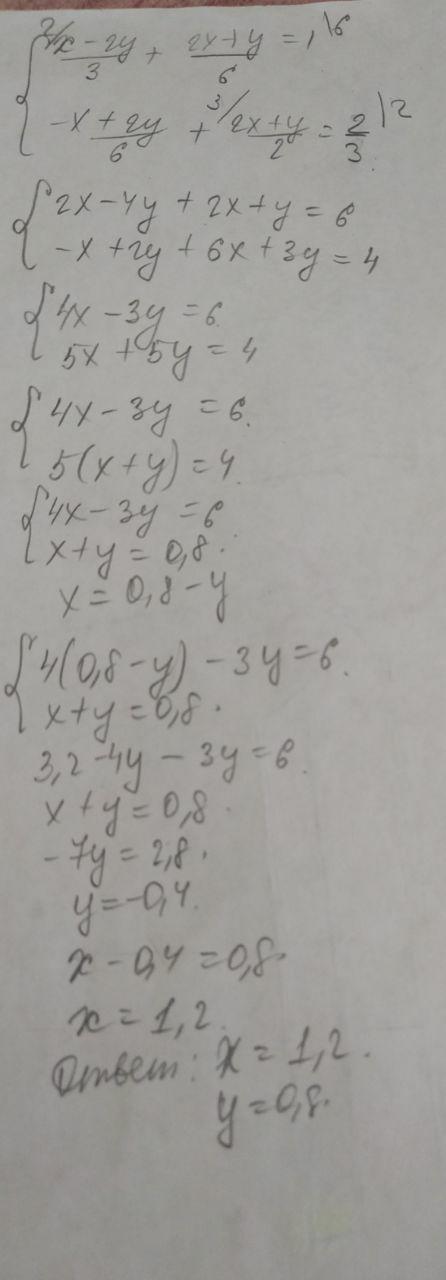 2/ x-2y/3 + 2x+y/6 = 1 \6
-x+2y/6 + 3/ 2x+y/2 = 2/3 \2
2x-4y+2x+y=6
-x+2y+6x+3y=4
4x-3y=6
5x+5y=4
4x-3y=6.
5(x+y)=4.
4x-3y=6
x+y=0,8.
x=0,8-y
4(0,8-y)-3y=6.
x+y=0,8.
3,2-4y-3y=6.
x+y=0,8.
-7y=2,8.
y=-0,4.
x-0,4=0,8.
x=1,2.
Ответ: x=1,2.
y=0,8.